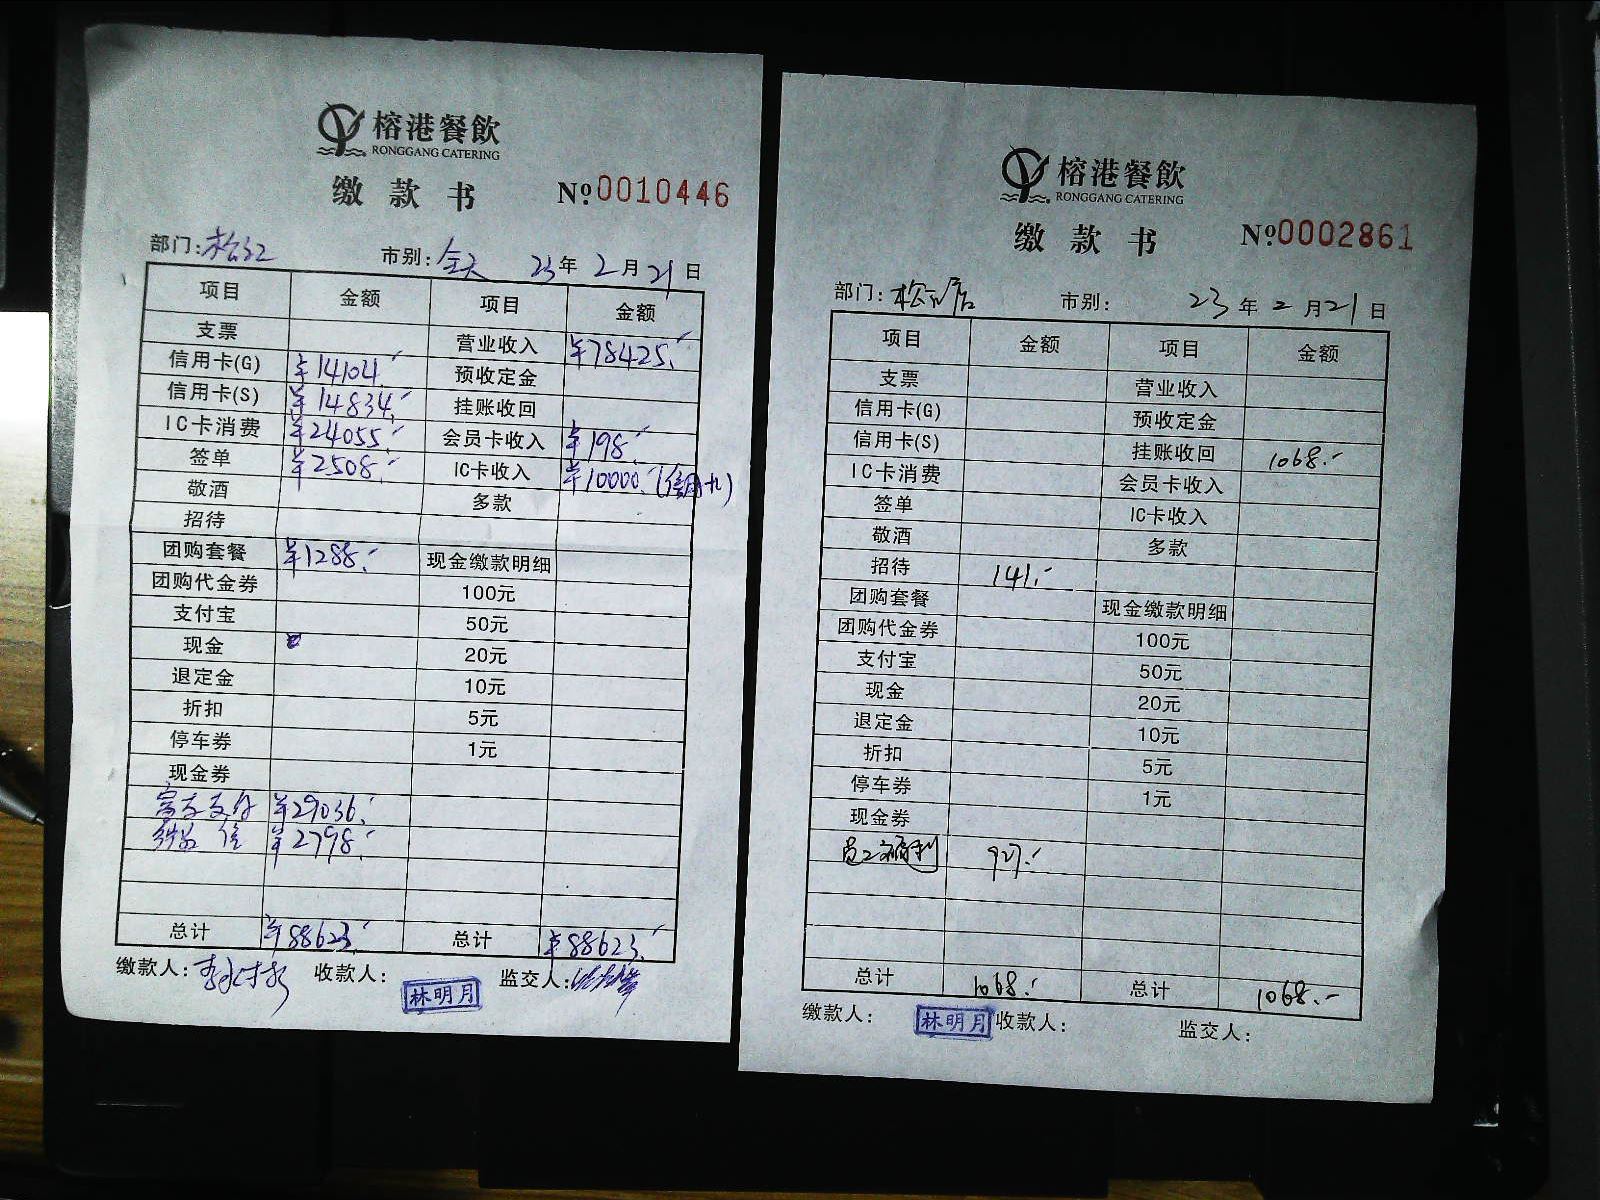 榕港餐飲
RONGGANG CATERING
缴款书 Nº 0010446
部门:松江 市别:全天 23年2月21日
项目 金额 项目 金额
支票 营业收入 ¥78425.-
信用卡(G) ¥14104.- 预收定金
信用卡(S) ¥14834.- 挂账收回
IC卡消费 ¥24055.- 会员卡收入 ¥198.-
签单 ¥2508.- IC卡收入 ¥10000.-(信用卡)
敬酒 多款
招待
团购套餐 ¥1288.- 现金缴款明细
团购代金券 100元
支付宝 50元
现金 20元
退定金 10元
折扣 5元
停车券 1元
现金券
富友支付 ¥29036.-
¥2798.-
总计 ¥88623.- 总计 ¥88623.-
缴款人: 收款人: 林明月 监交人:
榕港餐飲
RONGGANG CATERING
缴款书 Nº 0002861
部门: 市别: 23年2月21日
项目 金额 项目 金额
支票 营业收入
信用卡(G) 预收定金
信用卡(S) 挂账收回 1068.-
IC卡消费 会员卡收入
签单 IC卡收入
敬酒 多款
招待 141.-
团购套餐 现金缴款明细
团购代金券 100元
支付宝 50元
现金 20元
退定金 10元
折扣 5元
停车券 1元
现金券
员工福利 927.-
总计 1068.- 总计 1068.-
缴款人: 林明月 收款人: 监交人: